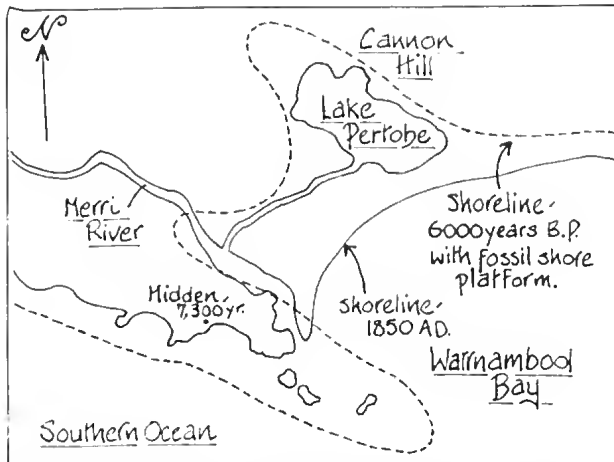 N
Cannon
Hill
Lake
Pertobe
Merri
River
Shoreline-
6000years B.P.
with fossil shore
platform.
Midden,
7,300yr.
Shoreline-
1850 AD.
Warrnambool
Bay
Southern Ocean